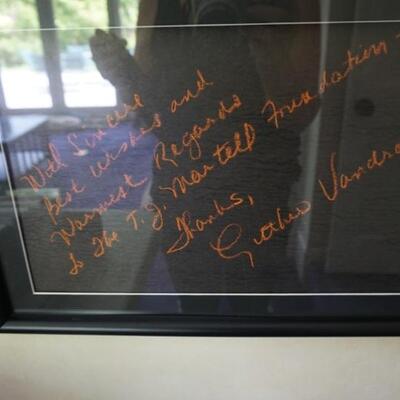 With Sincere
Best Wishes and
Warmest Regards
to The T.J. Martell Foundation -
Thanks,
Luther Vandro